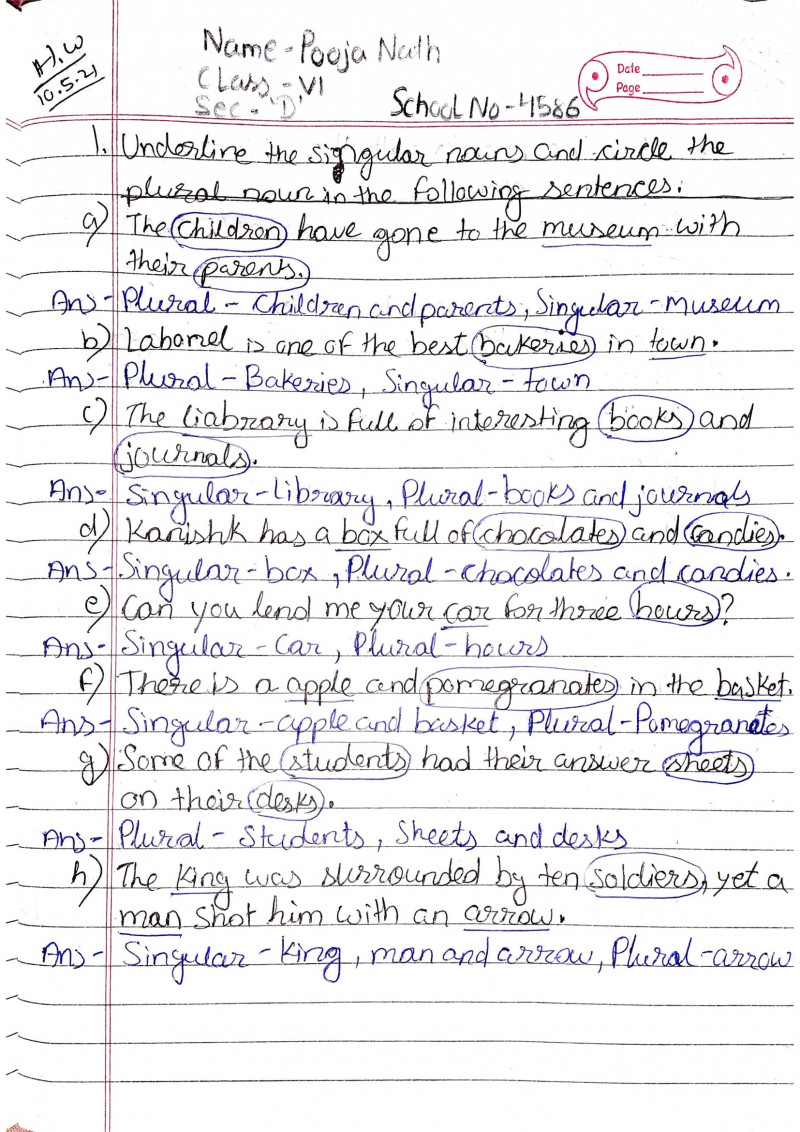 H.W
10.5.21
Name - Pooja Nath
Class - VI
Sec - 'D'
School No - 4586
Date
Page
1. Underline the singular nouns and circle the
plural noun in the following sentences.
a) The children have gone to the museum with
their parents.
Ans - Plural - Children and parents, Singular - museum
b) Labonel is one of the best bakeries in town.
Ans - Plural - Bakeries, Singular - town
c) The liabrary is full of interesting books and
journals.
Ans - Singular - library, Plural - books and journals
d) Kanishk has a box full of chocolates and candies.
Ans - Singular - box, Plural - chocolates and candies.
e) Can you lend me your car for three hours?
Ans - Singular - Car, Plural - hours
f) There is a apple and pomegranates in the basket.
Ans - Singular - apple and basket, Plural - Pomegranates
g) Some of the students had their answer sheets
on their desks.
Ans - Plural - Students, Sheets and desks
h) The king was surrounded by ten soldiers, yet a
man shot him with an arrow.
Ans - Singular - King, man and arrow, Plural - arrow